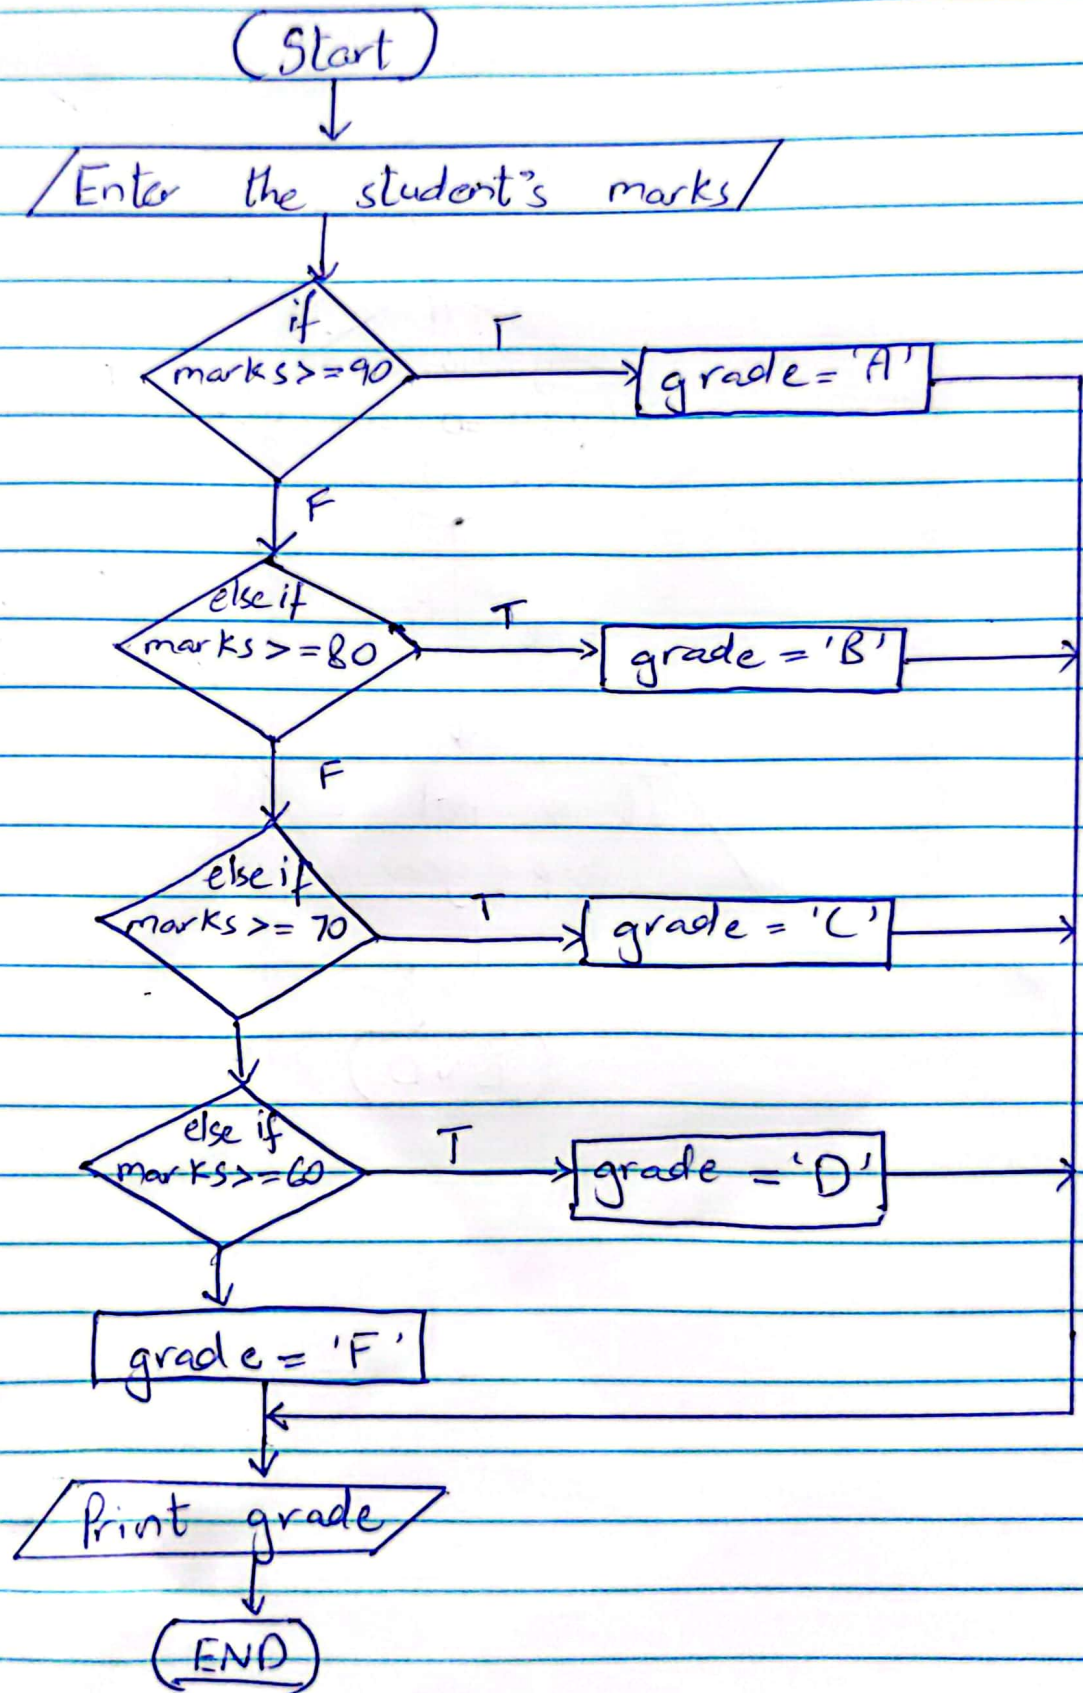 Start
Enter the student's marks
if
marks>=90
T
grade = 'A'
F
else if
marks >=80
T
grade = 'B'
F
else if
marks >= 70
T
grade = 'C'
else if
marks>=60
T
grade = 'D'
grade = 'F'
Print grade
END